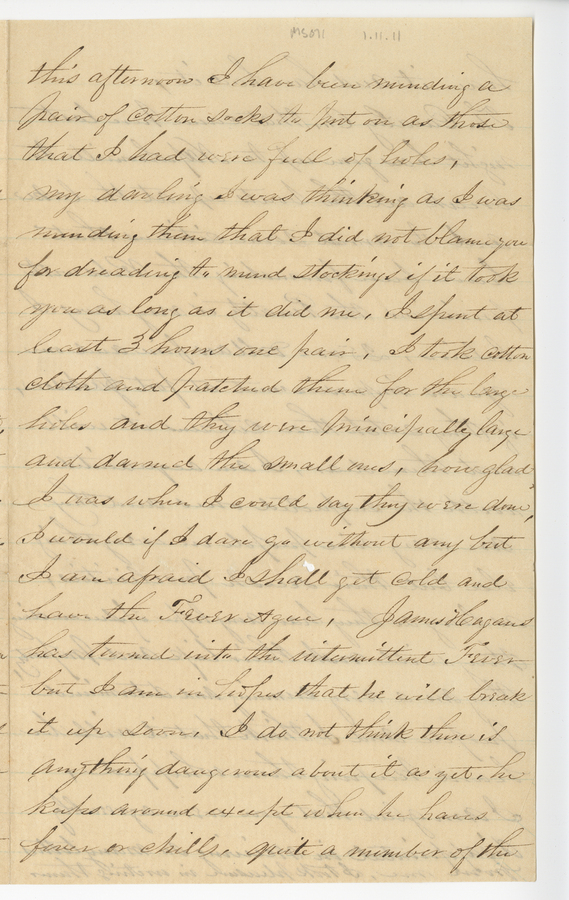 MS071 1.11.11
this afternoon I have been minding a
pair of cotton socks to put on as those
that I had were full of holes,
my darling I was thinking as I was
minding them that I did not blame you
for dreading to mend stockings if it took
you as long as it did me, I spent at
least 3 hours one pair, I took cotton
cloth and patched them for the large
holes and they were principally large
and darned the small ones, how glad
I was when I could say they were done,
I would if I dare go without any but
I am afraid I shall get cold and
have the Fever Ague, James
has turned into the intermittent Fever
but I am in hopes that he will break
it up soon, I do not think there is
anything dangerous about it as yet, he
keeps around except when he haves
fever or chills. quite a number of the